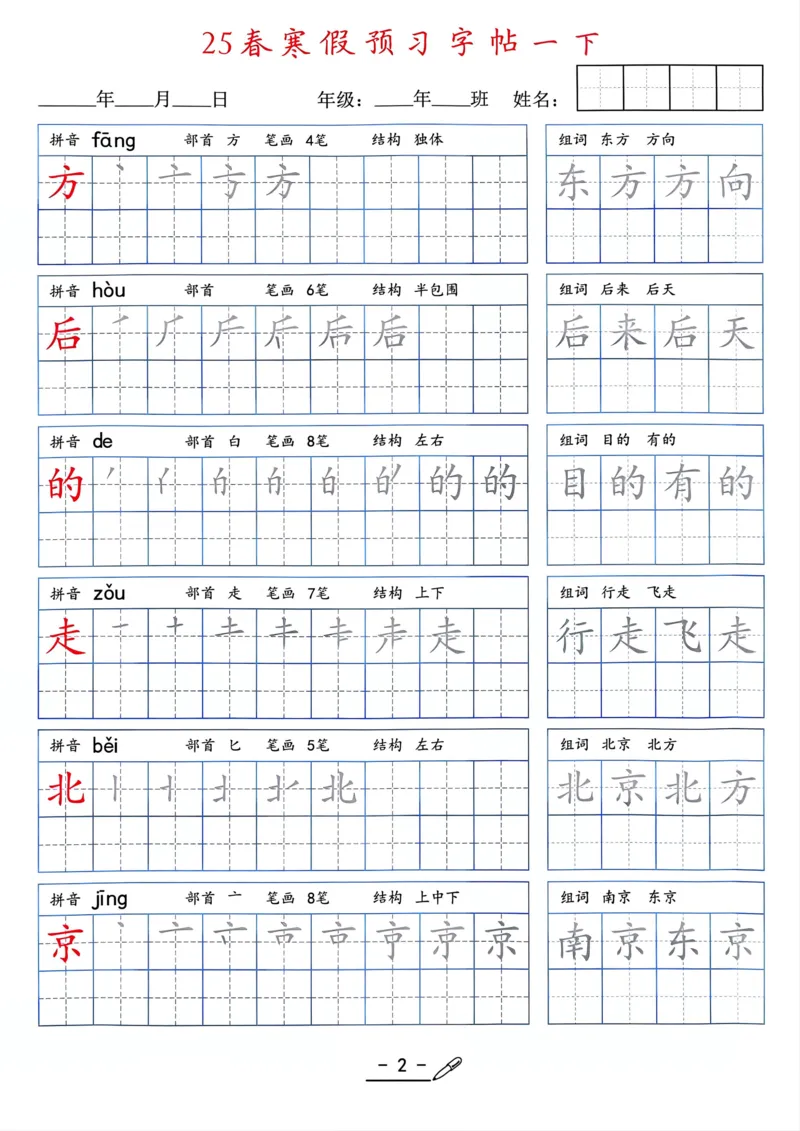 25春寒假预习字帖一下
______年____月____日 年级：____年____班 姓名：
拼音 fāng 部首 方 笔画 4笔 结构 独体 组词 东方 方向
方 丶 亠 方 方 东方方向
拼音 hòu 部首 笔画 6笔 结构 半包围 组词 后来 后天
后 后 后来后天
拼音 de 部首 白 笔画 8笔 结构 左右 组词 目的 有的
的 的 的 目的有的
拼音 zǒu 部首 走 笔画 7笔 结构 上下 组词 行走 飞走
走 走 行走飞走
拼音 běi 部首 匕 笔画 5笔 结构 左右 组词 北京 北方
北 北 北京北方
拼音 jīng 部首 亠 笔画 8笔 结构 上中下 组词 南京 东京
京 丶 亠 京 南京东京
- 2 -